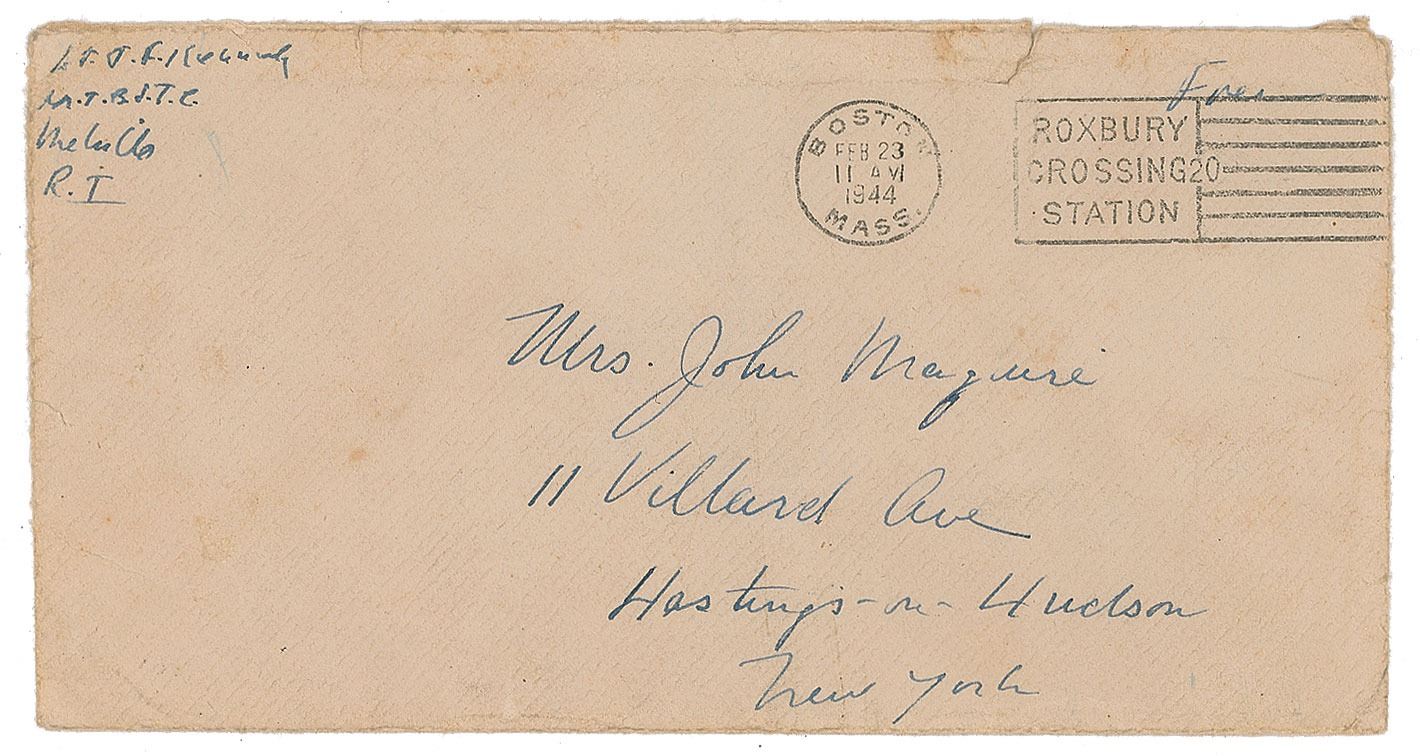 Lt. J. F. Kennedy
M.T.B.S.T.C.
Melville
R.I
Free
BOSTON
FEB 23
11 AM
1944
MASS.
ROXBURY
CROSSING 20
STATION
Mrs. John Maguire
11 Villard Ave
Hastings-on-Hudson
New York